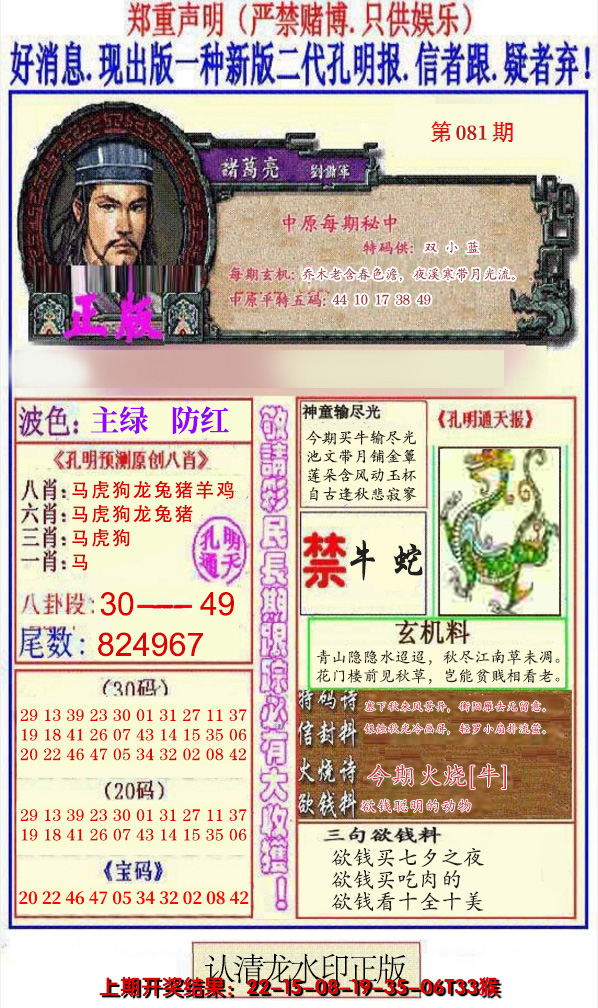 郑重声明（严禁赌博.只供娱乐）
好消息.现出版一种新版二代孔明报.信者跟.疑者弃！
第081期
諸葛亮 劉備軍
中原每期秘中
特码供：双 小 蓝
每期玄机：乔木老含春色澹，夜溪寒带月光流。
中原平特五码：44 10 17 38 49
正版
波色：主绿 防红
《孔明预测原创八肖》
八肖：马虎狗龙兔猪羊鸡
六肖：马虎狗龙兔猪
三肖：马虎狗
一肖：马
孔明
通天
八卦段：30——49
尾数：824967
（30码）
29 13 39 23 30 01 31 27 11 37
19 18 41 26 07 43 14 15 35 06
20 22 46 47 05 34 32 02 08 42
（20码）
29 13 39 23 30 01 31 27 11 37
19 18 41 26 07 43 14 15 35 06
《宝码》
20 22 46 47 05 34 32 02 08 42
敬請彩民長期跟踪必有大收獲！
神童输尽光
今期买牛输尽光
池文带月铺金簟
莲朵含风动玉杯
自古逢秋悲寂寥
《孔明通天报》
禁牛 蛇
玄机料
青山隐隐水迢迢，秋尽江南草未凋。
花门楼前见秋草，岂能贫贱相看老。
特码诗 塞下秋来风景异，衡阳雁去无留意。
信封料 银烛秋光冷画屏，轻罗小扇扑流萤。
火烧诗 今期火烧[牛]
欲钱料 欲钱聪明的动物
三句欲钱料
欲钱买七夕之夜
欲钱买吃肉的
欲钱看十全十美
认清龙水印正版
上期开奖结果：22-15-08-19-35-06T33猴